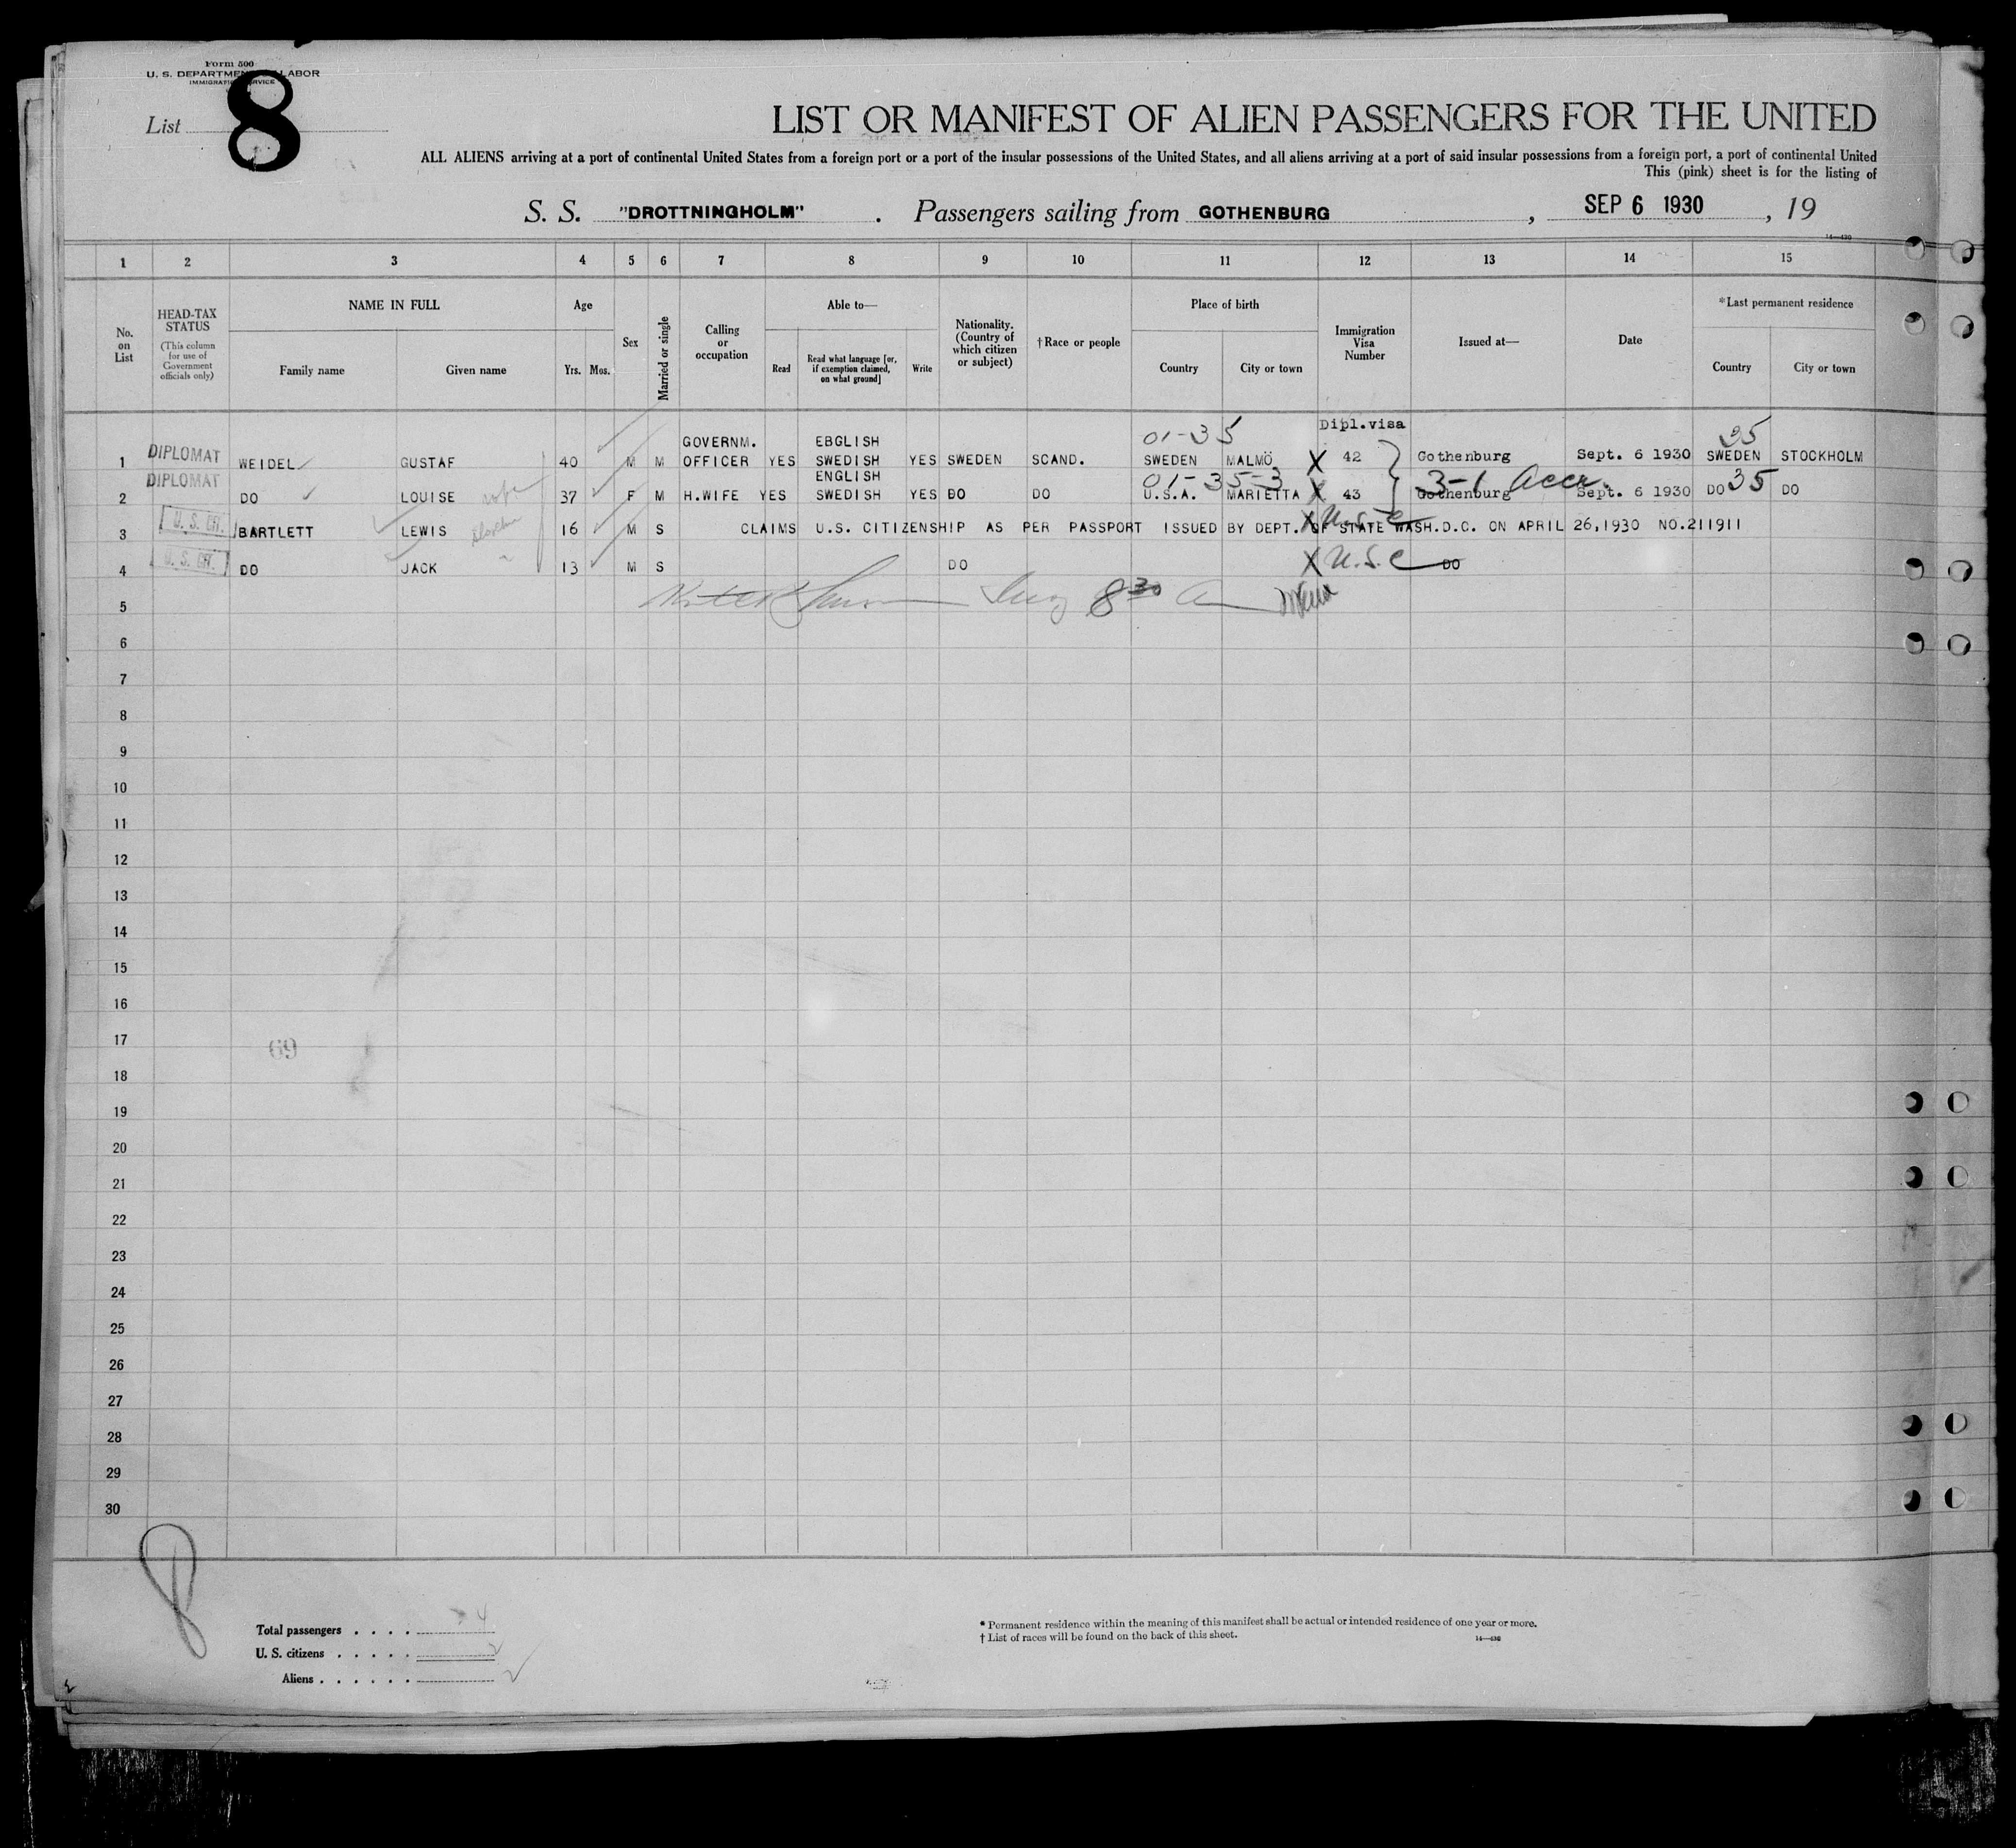 Form 500
U. S. DEPARTMENT LABOR
IMMIGRATION SERVICE
List 8
LIST OR MANIFEST OF ALIEN PASSENGERS FOR THE UNITED
ALL ALIENS arriving at a port of continental United States from a foreign port or a port of the insular possessions of the United States, and all aliens arriving at a port of said insular possessions from a foreign port, a port of continental United
This (pink) sheet is for the listing of
S. S. "DROTTNINGHOLM" . Passengers sailing from GOTHENBURG , SEP 6 1930 , 19
14—430
1 2 3 4 5 6 7 8 9 10 11 12 13 14 15
No. on List
HEAD-TAX STATUS
(This column for use of Government officials only)
NAME IN FULL
Family name Given name
Age
Yrs. Mos.
Sex
Married or single
Calling or occupation
Able to—
Read
Read what language [or, if exemption claimed, on what ground]
Write
Nationality. (Country of which citizen or subject)
†Race or people
Place of birth
Country City or town
Immigration Visa Number
Issued at—
Date
*Last permanent residence
Country City or town
Dipl.visa
GOVERNM. EBGLISH 01-35 35
1 DIPLOMAT WEIDEL GUSTAF 40 M M OFFICER YES SWEDISH YES SWEDEN SCAND. SWEDEN MALMÖ X 42 Gothenburg Sept. 6 1930 SWEDEN STOCKHOLM
ENGLISH 01-35-3 3-1 Accr.
2 DIPLOMAT DO LOUISE wife 37 F M H.WIFE YES SWEDISH YES DO DO U.S.A. MARIETTA X 43 Gothenburg Sept. 6 1930 DO 35 DO
3 BARTLETT LEWIS 16 M S CLAIMS U.S. CITIZENSHIP AS PER PASSPORT ISSUED BY DEPT. OF STATE WASH.D.C. ON APRIL 26,1930 NO.211911
X U.S.C
4 DO JACK 13 M S DO X U.S.C DO
5 8 30
6
7
8
9
10
11
12
13
14
15
16
17
69
18
19
20
21
22
23
24
25
26
27
28
29
30
Total passengers . . . . 4
U. S. citizens . . . . . 2
Aliens . . . . . . 2
* Permanent residence within the meaning of this manifest shall be actual or intended residence of one year or more.
† List of races will be found on the back of this sheet.
14—430